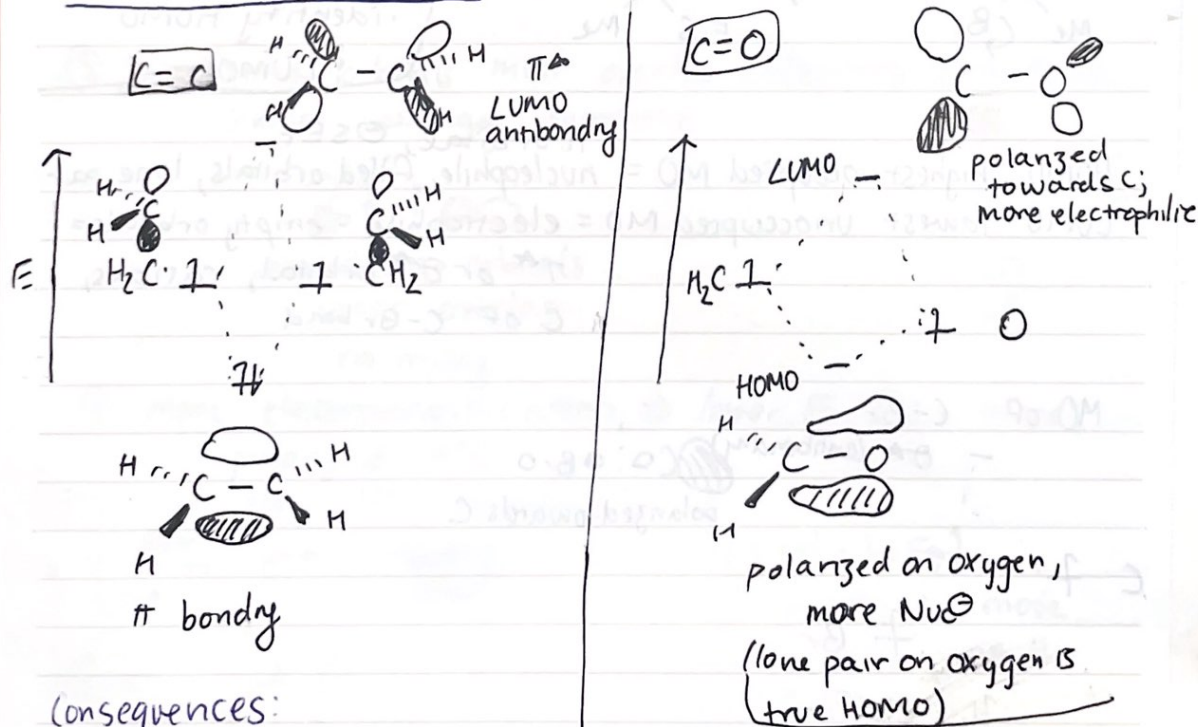 C=C
H H C - C H H
π*
LUMO
antibonding
E
H H C
H₂C
C H H
CH₂
H H C - C H H
π bonding
Consequences:
C=O
C - O
LUMO
polarized
towards C;
more electrophilic
H₂C
O
HOMO
H H C - O
polarized on oxygen,
more Nuc⊖
(lone pair on oxygen is
true HOMO)